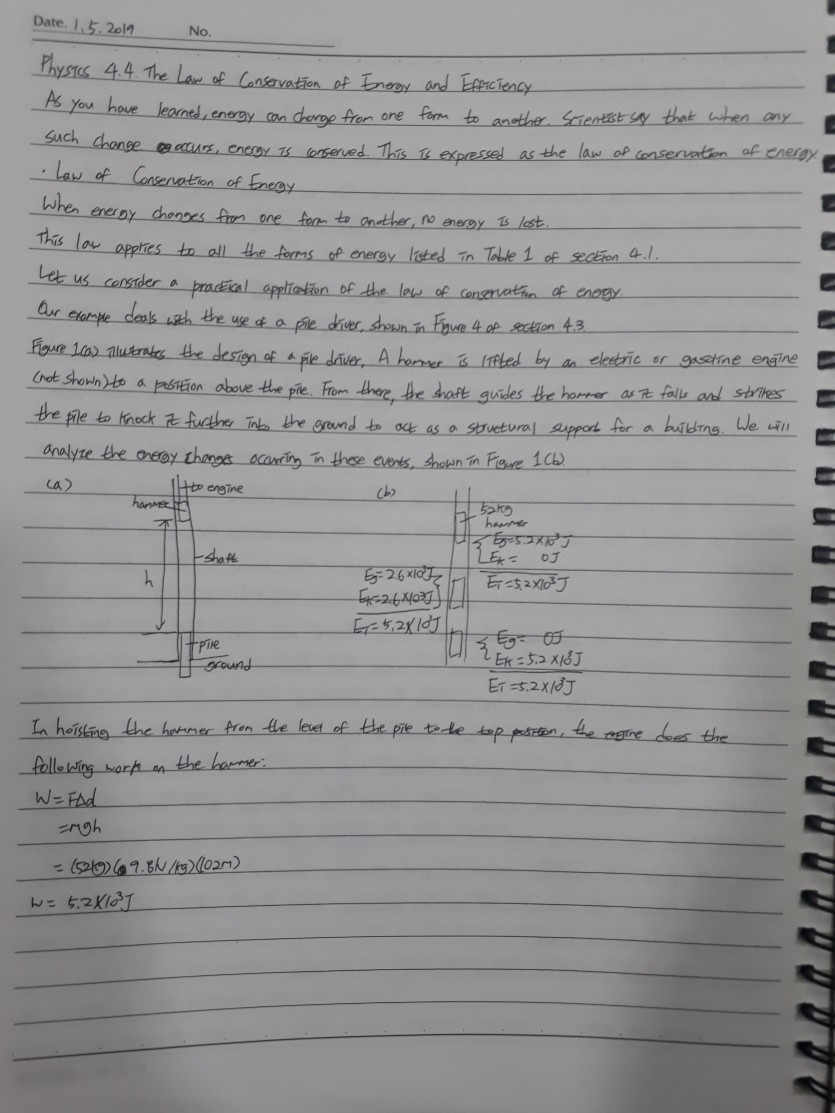 Date. 1. 5. 2019 No.
Physics 4.4. The Law of Conservation of Energy and Efficiency
As you have learned, energy can change from one form to another. Scientist say that when any
such change occurs, energy is conserved. This is expressed as the law of conservation of energy
· Law of Conservation of Energy
When energy changes from one form to another, no energy is lost.
This law applies to all the forms of energy listed in Table 1 of section 4.1.
Let us consider a practical application of the law of conservation of energy.
Our example deals with the use of a pile driver, shown in Figure 4 of section 4.3
Figure 1(a) illustrates the design of a pile driver, A hammer is lifted by an electric or gasoline engine
(not shown) to a position above the pile. From there, the shaft guides the hammer as it falls and strikes
the pile to knock it further into the ground to act as a structural support for a building. We will
analyze the energy changes occurring in these events, shown in Figure 1(b)
(a)
to engine
hammer
shaft
h
pile
ground
(b)
52kg
hammer
Eg=5.2×10³J
Ek= 0J
ET=5.2×10³J
Eg=2.6×10³J
Ek=2.6×10³J
ET=5.2×10³J
Eg= 0J
Ek=5.2×10³J
ET=5.2×10³J
In hoisting the hammer from the level of the pile to the top position, the engine does the
following work on the hammer:
W=FΔd
=mgh
=(52kg)(9.8N/kg)(102m)
W= 5.2×10³J